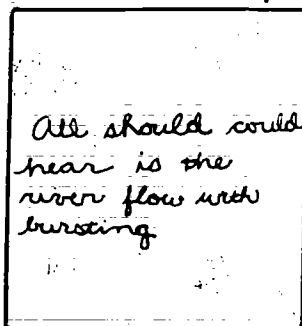 All should could
hear is the
river flow with
bursting